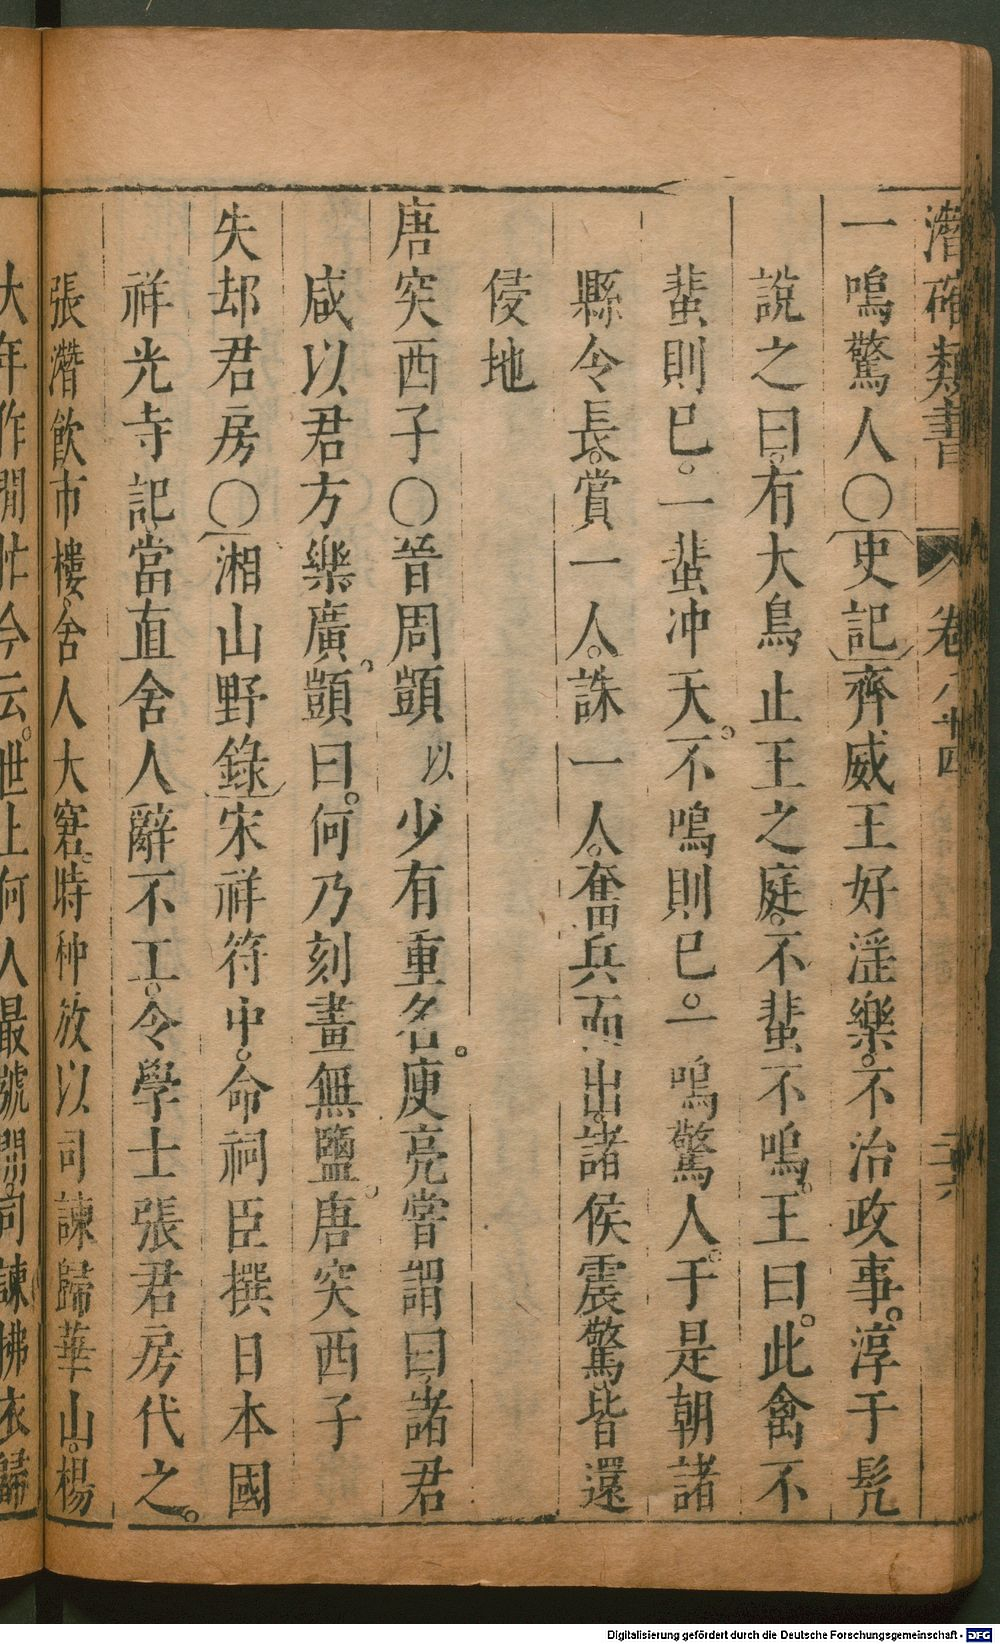 潛確類書 卷八十四 三十六
一鳴驚人〇史記齊威王好淫樂。不治政事。淳于髡
說之曰。有大鳥止王之庭。不蜚不鳴。王曰。此禽不
蜚則已。一蜚冲天。不鳴則已。一鳴驚人。于是朝諸
縣令長。賞一人。誅一人。奮兵而出。諸侯震驚。皆還
侵地
唐突西子〇晉周顗以少有重名。庾亮嘗謂曰。諸君
咸以君方樂廣。顗曰。何乃刻畫無鹽。唐突西子
失却君房〇湘山野錄宋祥符中。命祠臣撰日本國
祥光寺記。當直舍人辭不工。令學士張君房代之。
張潛飲市樓。舍人大窘。時种放以司諫歸華山。楊
大年作閒忙令云。世上何人最號閒。司諫拂衣歸
Digitalisierung gefördert durch die Deutsche Forschungsgemeinschaft - DFG